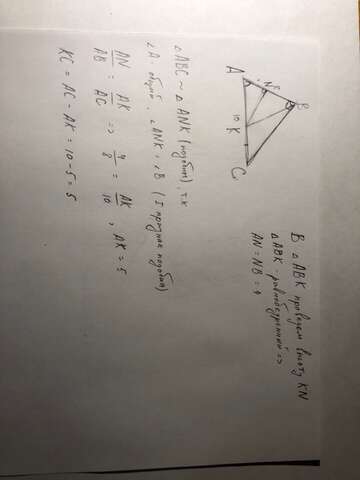 B
N
A
10
K
C
В △ABK проведем высоту KN
△ABK - равнобедренный =>
AN = NB = 4
△ABC ~ △ANK (подобны), т.к
∠A - общий, ∠ANK = ∠B (I признак подобия)
AN/AB = AK/AC => 4/8 = AK/10, AK = 5
KC = AC - AK = 10 - 5 = 5